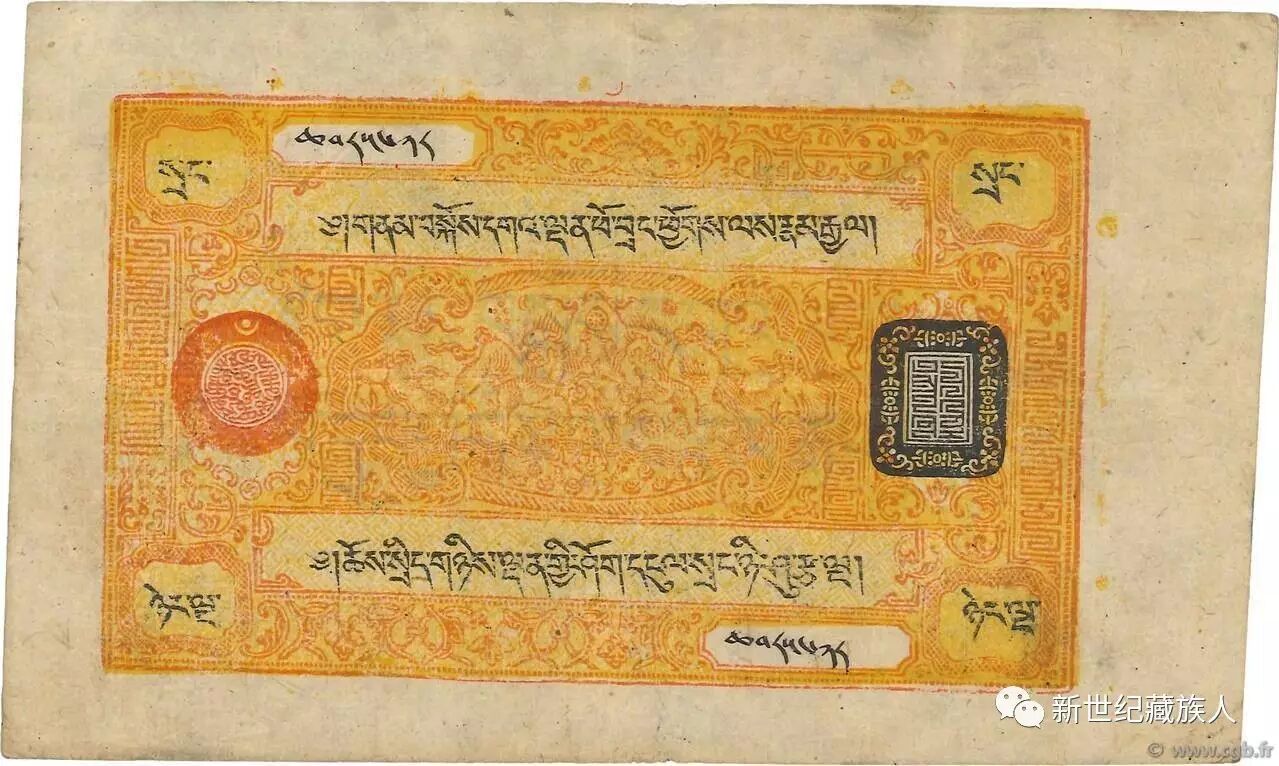 སྲང་ སྲང་
༄། །གནམ་བསྐོས་དགའ་ལྡན་ཕོ་བྲང་ཕྱོགས་ལས་རྣམ་རྒྱལ།
༄། །ཆོས་སྲིད་གཉིས་ལྡན་གྱི་ཤོག་དངུལ་སྲང་ཉི་ཤུ་རྩ་ལྔ།
ཉེར་ལྔ་ ཉེར་ལྔ་
新世纪藏族人
© www.cgb.fr